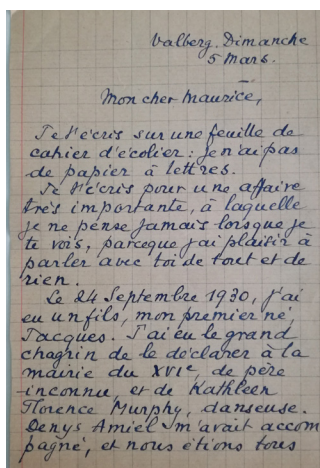 Valberg. Dimanche
5 Mars.
Mon cher Maurice,
Je t'écris sur une feuille de
cahier d'écolier : je n'ai pas
de papier à lettres.
Je t'écris pour une affaire
très importante, à laquelle
je ne pense jamais lorsque je
te vois, parceque j'ai plaisir à
parler avec toi de tout et de
rien.
Le 24 Septembre 1930, j'ai
eu un fils, mon premier né,
Jacques. J'ai eu le grand
chagrin de le déclarer à la
mairie du XVIe, de père
inconnu, et de Kathleen
Florence Murphy, danseuse.
Denys Amiel m'avait accom
pagné, et nous étions tous